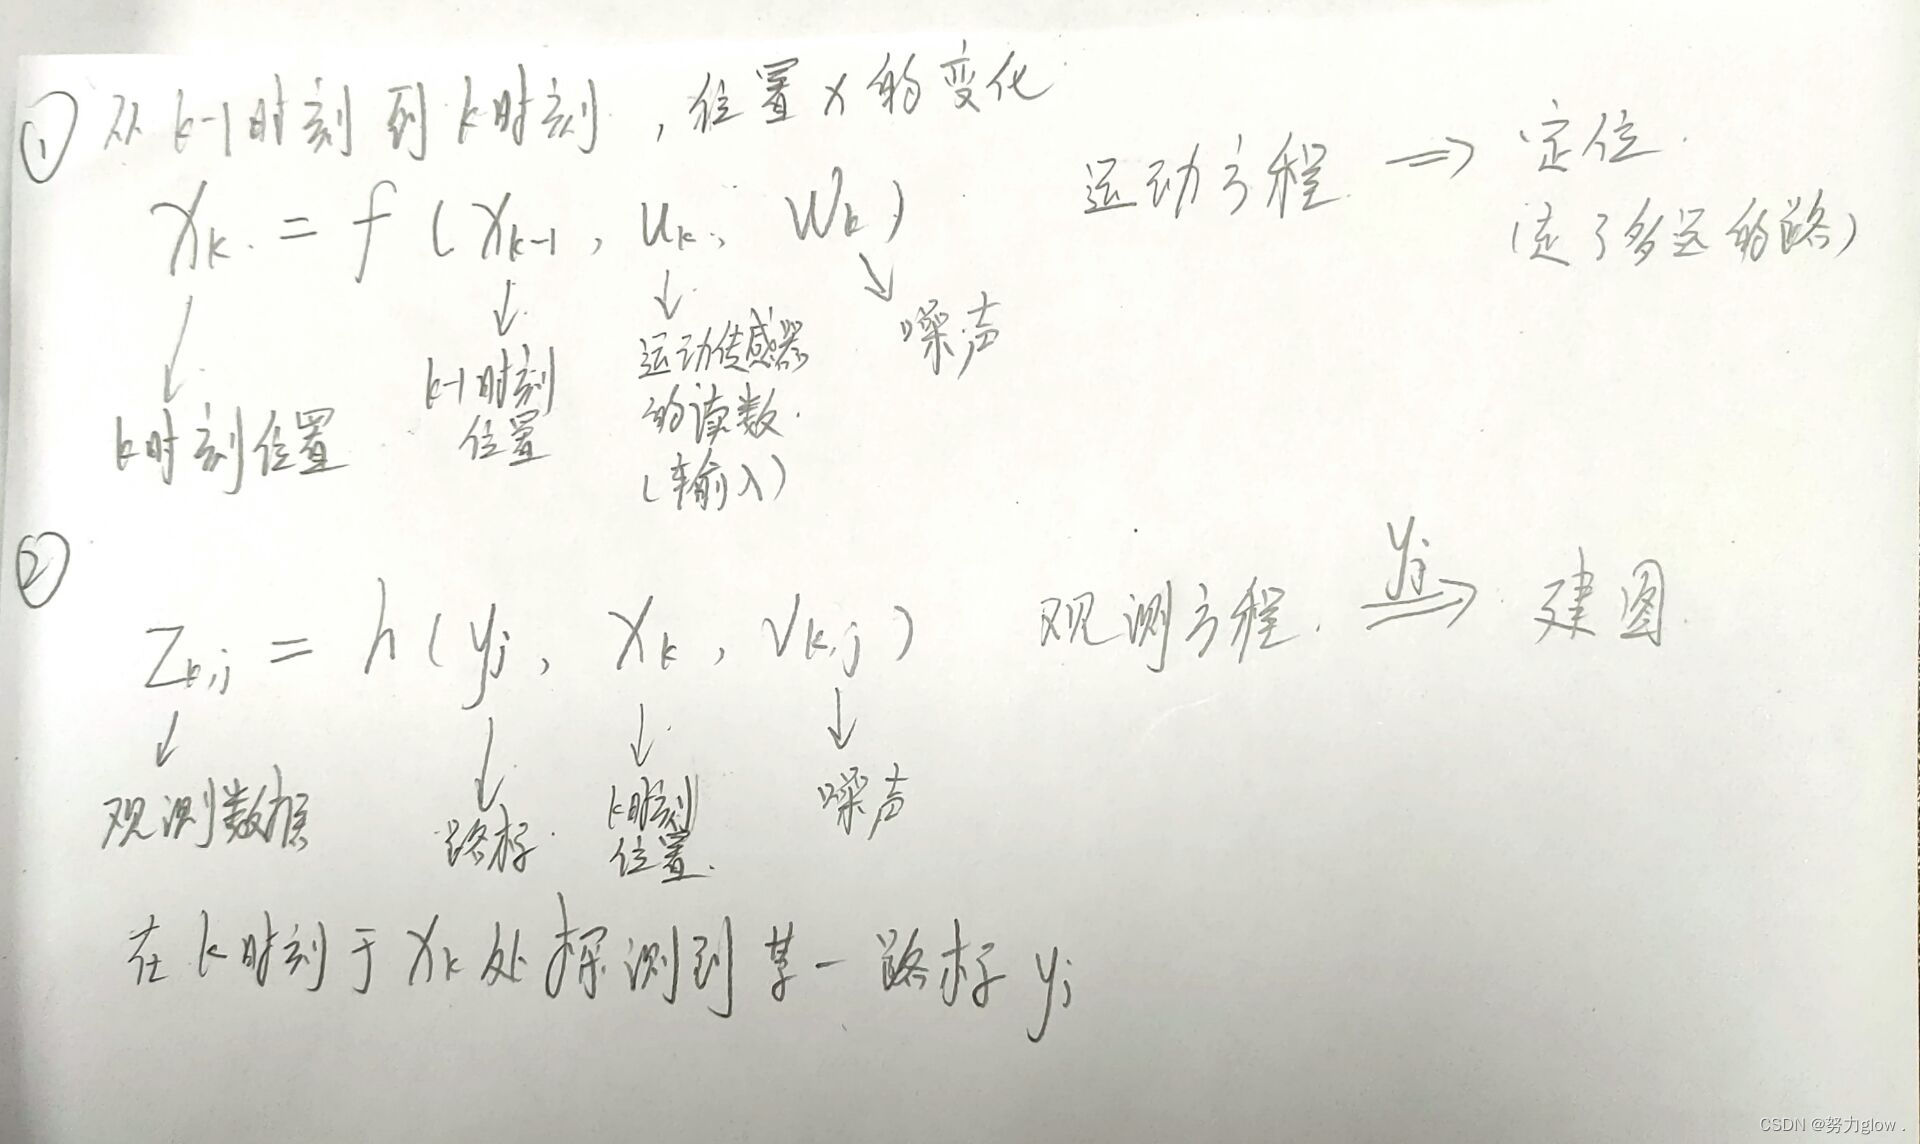 ① 从k-1时刻到k时刻，位置x的变化
x_k = f(x_{k-1}, u_k, w_k) 运动方程 ⇒ 定位
(走了多远的路)
k时刻位置
k-1时刻
位置
运动传感器
的读数
(输入)
噪声
② z_{k,j} = h(y_j, x_k, v_{k,j}) 观测方程 y_j ⇒ 建图
观测数据
路标
k时刻
位置
噪声
在k时刻于x_k处探测到某一路标y_j
CSDN @努力glow .